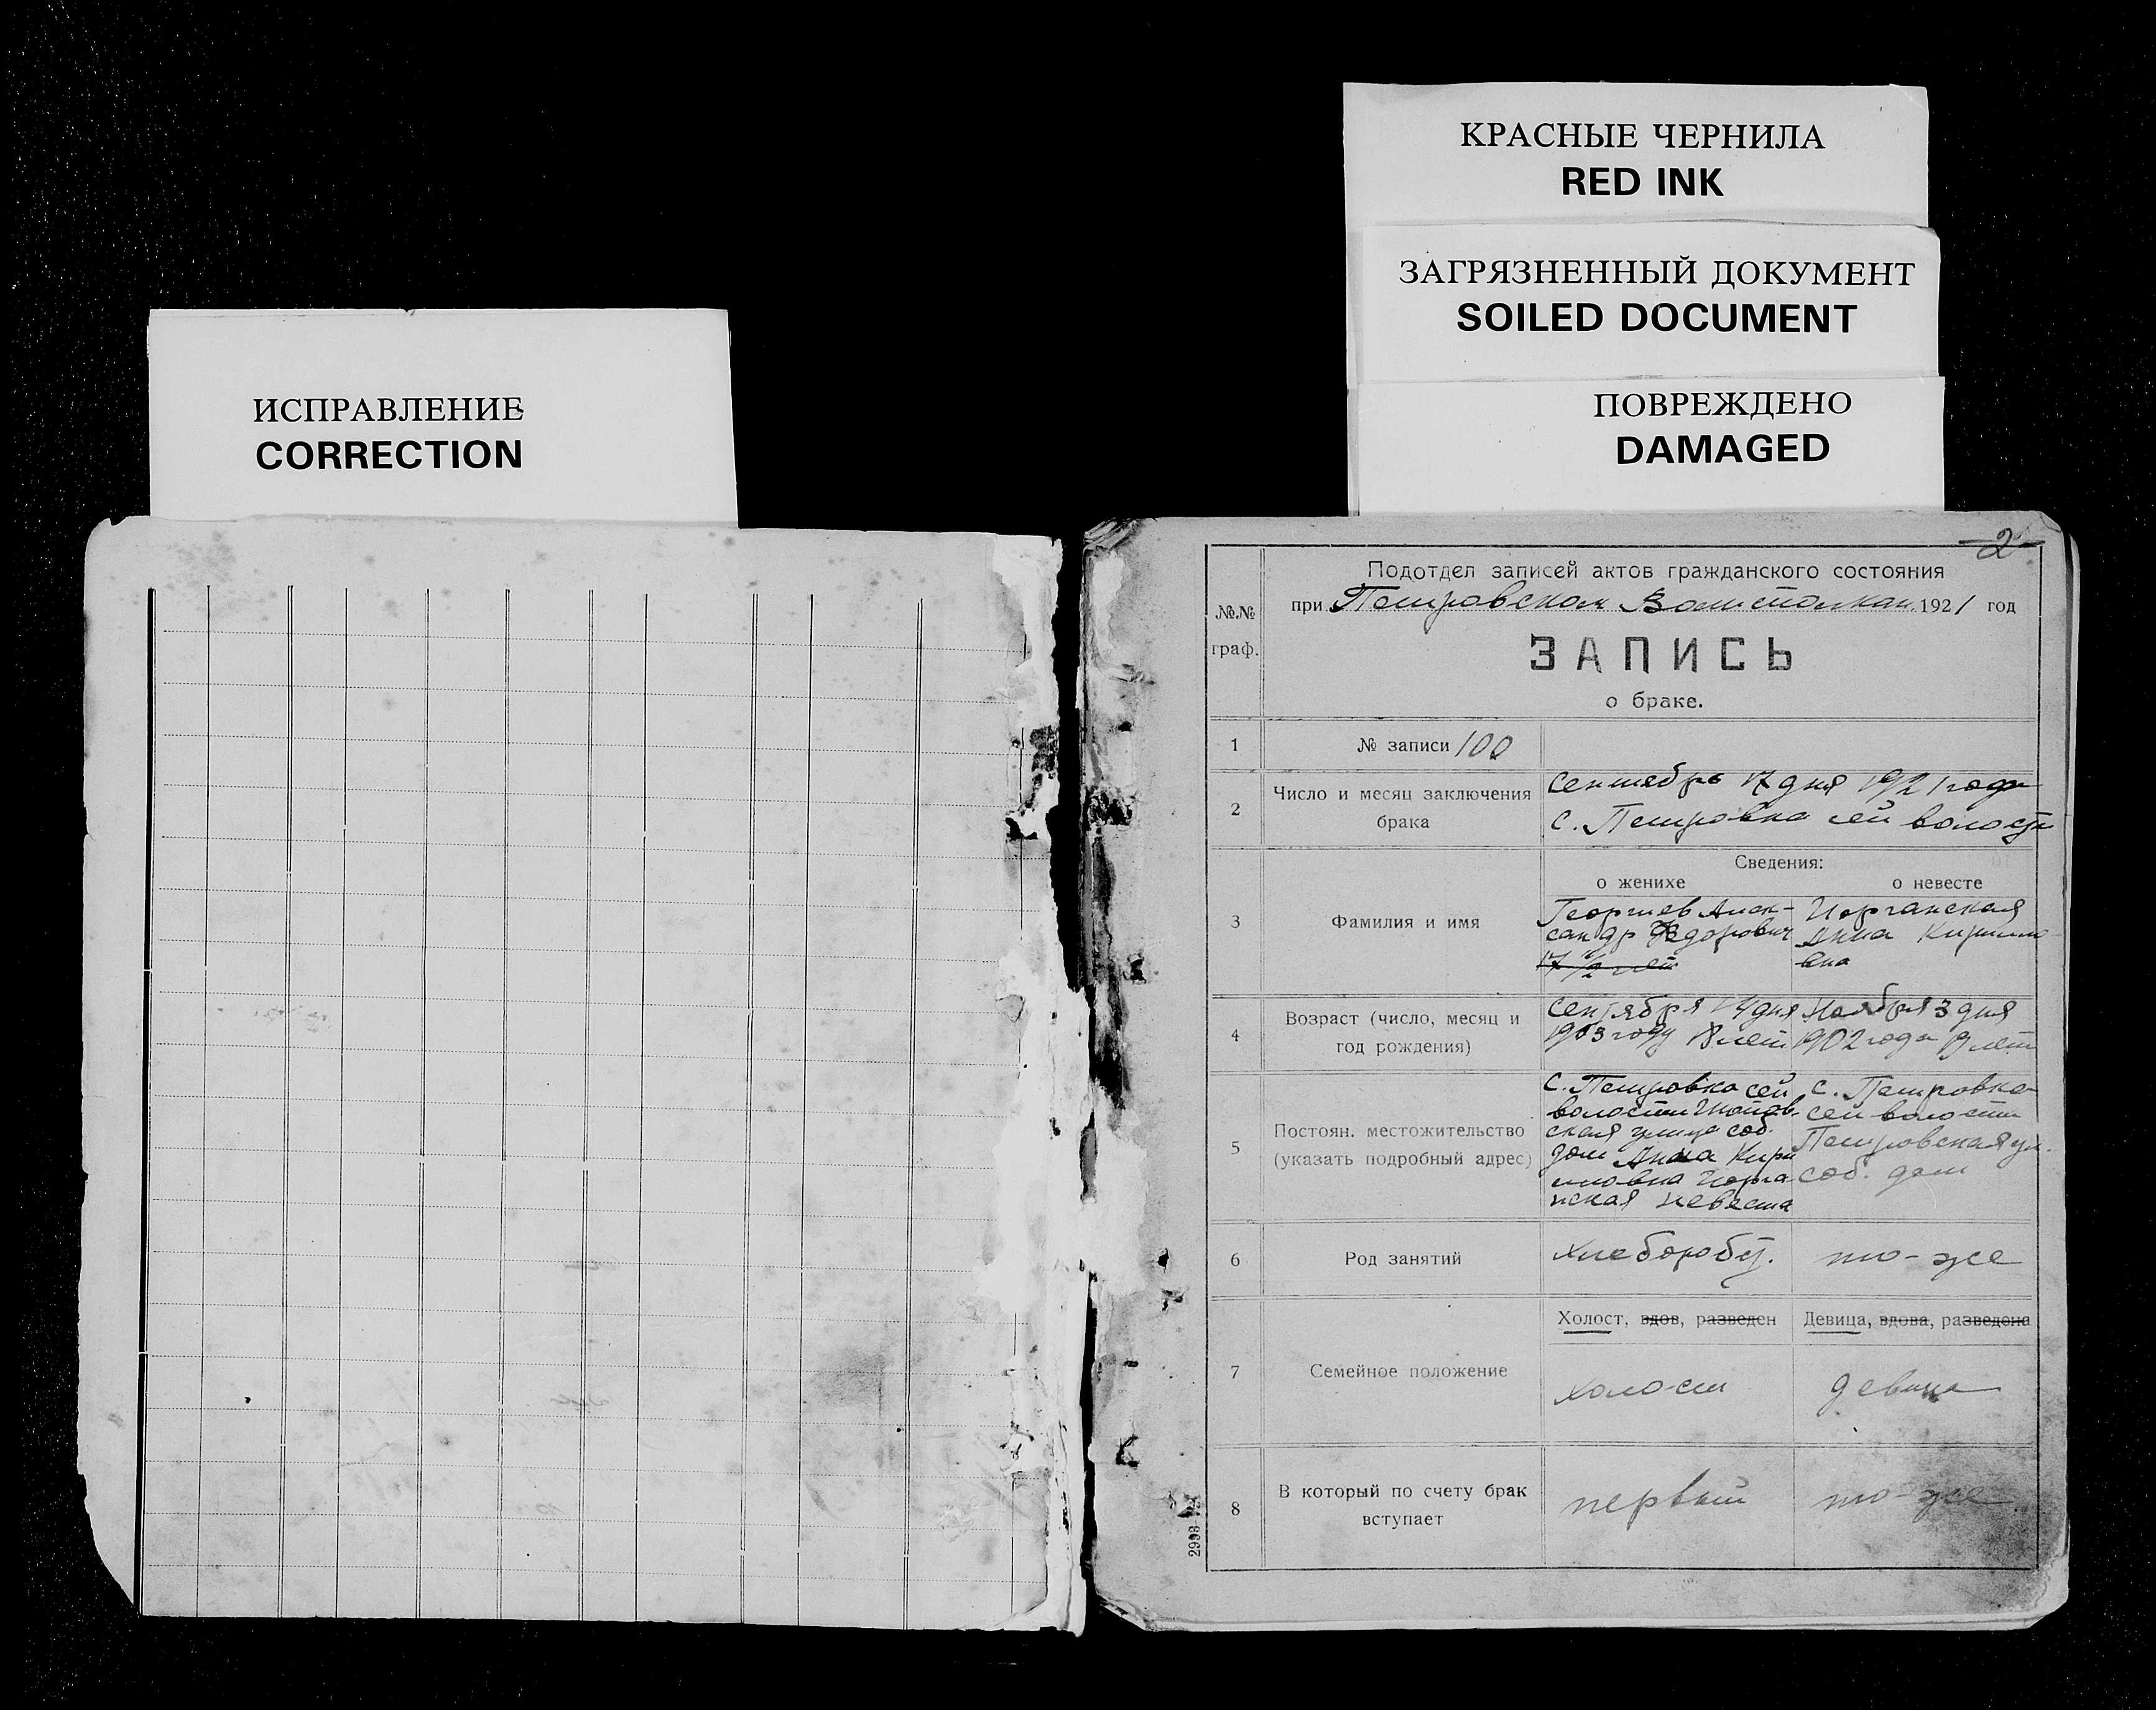 ИСПРАВЛЕНИЕ
CORRECTION
КРАСНЫЕ ЧЕРНИЛА
RED INK
ЗАГРЯЗНЕННЫЙ ДОКУМЕНТ
SOILED DOCUMENT
ПОВРЕЖДЕНО
DAMAGED
2
Подотдел записей актов гражданского состояния
№№ граф.
при Петровском 1921 год
ЗАПИСЬ
о браке.
1
№ записи 100
2
Число и месяц заключения
брака
Сентябрь 17 дня 1921 года
с. Петровка сей волости
3
Фамилия и имя
Сведения:
о женихе
Георгиев Алек-
сандр Федорович
17 1/2 лет
о невесте
Анна Кирилло
вна
4
Возраст (число, месяц и
год рождения)
Сентября 14 дня
1903 году 18 лет
Ноября 3 дня
1902 года 19 лет
5
Постоян. местожительство
(указать подробный адрес)
с. Петровка сей
волости
ская улица соб.
дом Анна Кири
лловна
нская невеста
с. Петровка
сей волости
Петровская ул.
соб. дом
6
Род занятий
хлебороб
то-же
7
Семейное положение
Холост, вдов, разведен
холост
Девица, вдова, разведена
девица
8
В который по счету брак
вступает
первый
то-же
2993